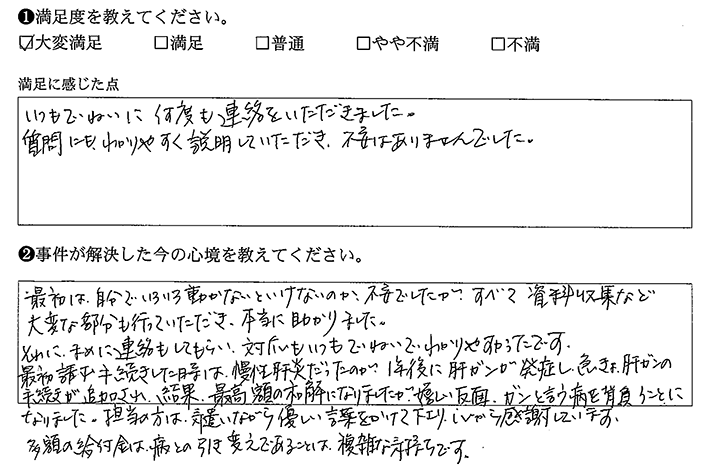 ❶満足度を教えてください。
☑大変満足 □満足 □普通 □やや不満 □不満
満足に感じた点
いつもていねいに何度も連絡をいただきました。
質問にも、わかりやすく説明していただき、不安はありませんでした。
❷事件が解決した今の心境を教えてください。
最初は、自分でいろいろ動かないといけないのか、不安でしたが、すべて資料収集など
大変な部分も行っていただき、本当に助かりました。
それに、まめに連絡もしてもらい、対応もいつもていねいでわかりやすかったです。
最初請求手続きした時は、慢性肝炎だったのが、1年後に肝ガンが発症し、急きょ、肝ガンの
手続きが追加され、結果、最高額の和解になりましたが、嬉しい反面、ガンと言う病を背負うことに
なりました。担当の方は、気遣いながら優しい言葉をかけて下さり、心から感謝しています。
多額の給付金は、病との引き変えであることは、複雑な気持ちです。